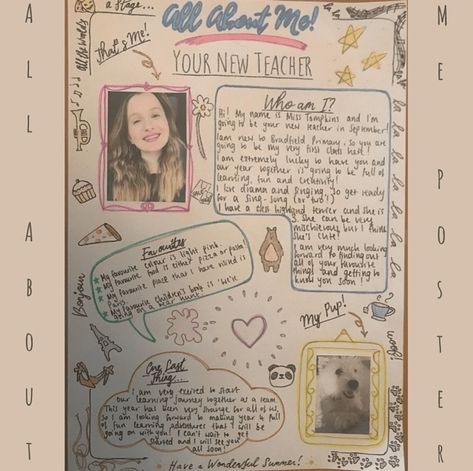 ALL ABOUT
ME POSTER
All the World's a Stage...
All About Me!
YOUR NEW TEACHER
That's Me!
Who am I?
Hi! My name is Miss Tompkins and I'm
going to be your new teacher in September!
I am new to Bradfield Primary. So you are
going to be my very first class half!
I am extremely lucky to have you and
our year together is going to be full of
learning, fun and creativity!
I love drama and singing, so get ready
for a sing-song (or two!)
I have a highland terrier and she is
She can be very
mischievous but I think
she's cute!
I am very much looking
forward to finding out
all of your favourite
things and getting to
know you soon!
la la la la la la la la la
Favourites
My favourite colour is light pink.
My favourite food is either pizza or pasta!
My favourite place that I have visited is
Paris
My favourite children's book is 'We're
going on a bear hunt'
Bonjour
My Pup!
woof!
One Last
Thing...
I am very excited to start
our learning journey together as a team.
This year has been very strange for all of us,
So I am looking forward to making year 4 full
of fun learning adventures that I will be
going on with you! I can't wait to get
started and I will see you
all soon!
Have a Wonderful Summer!